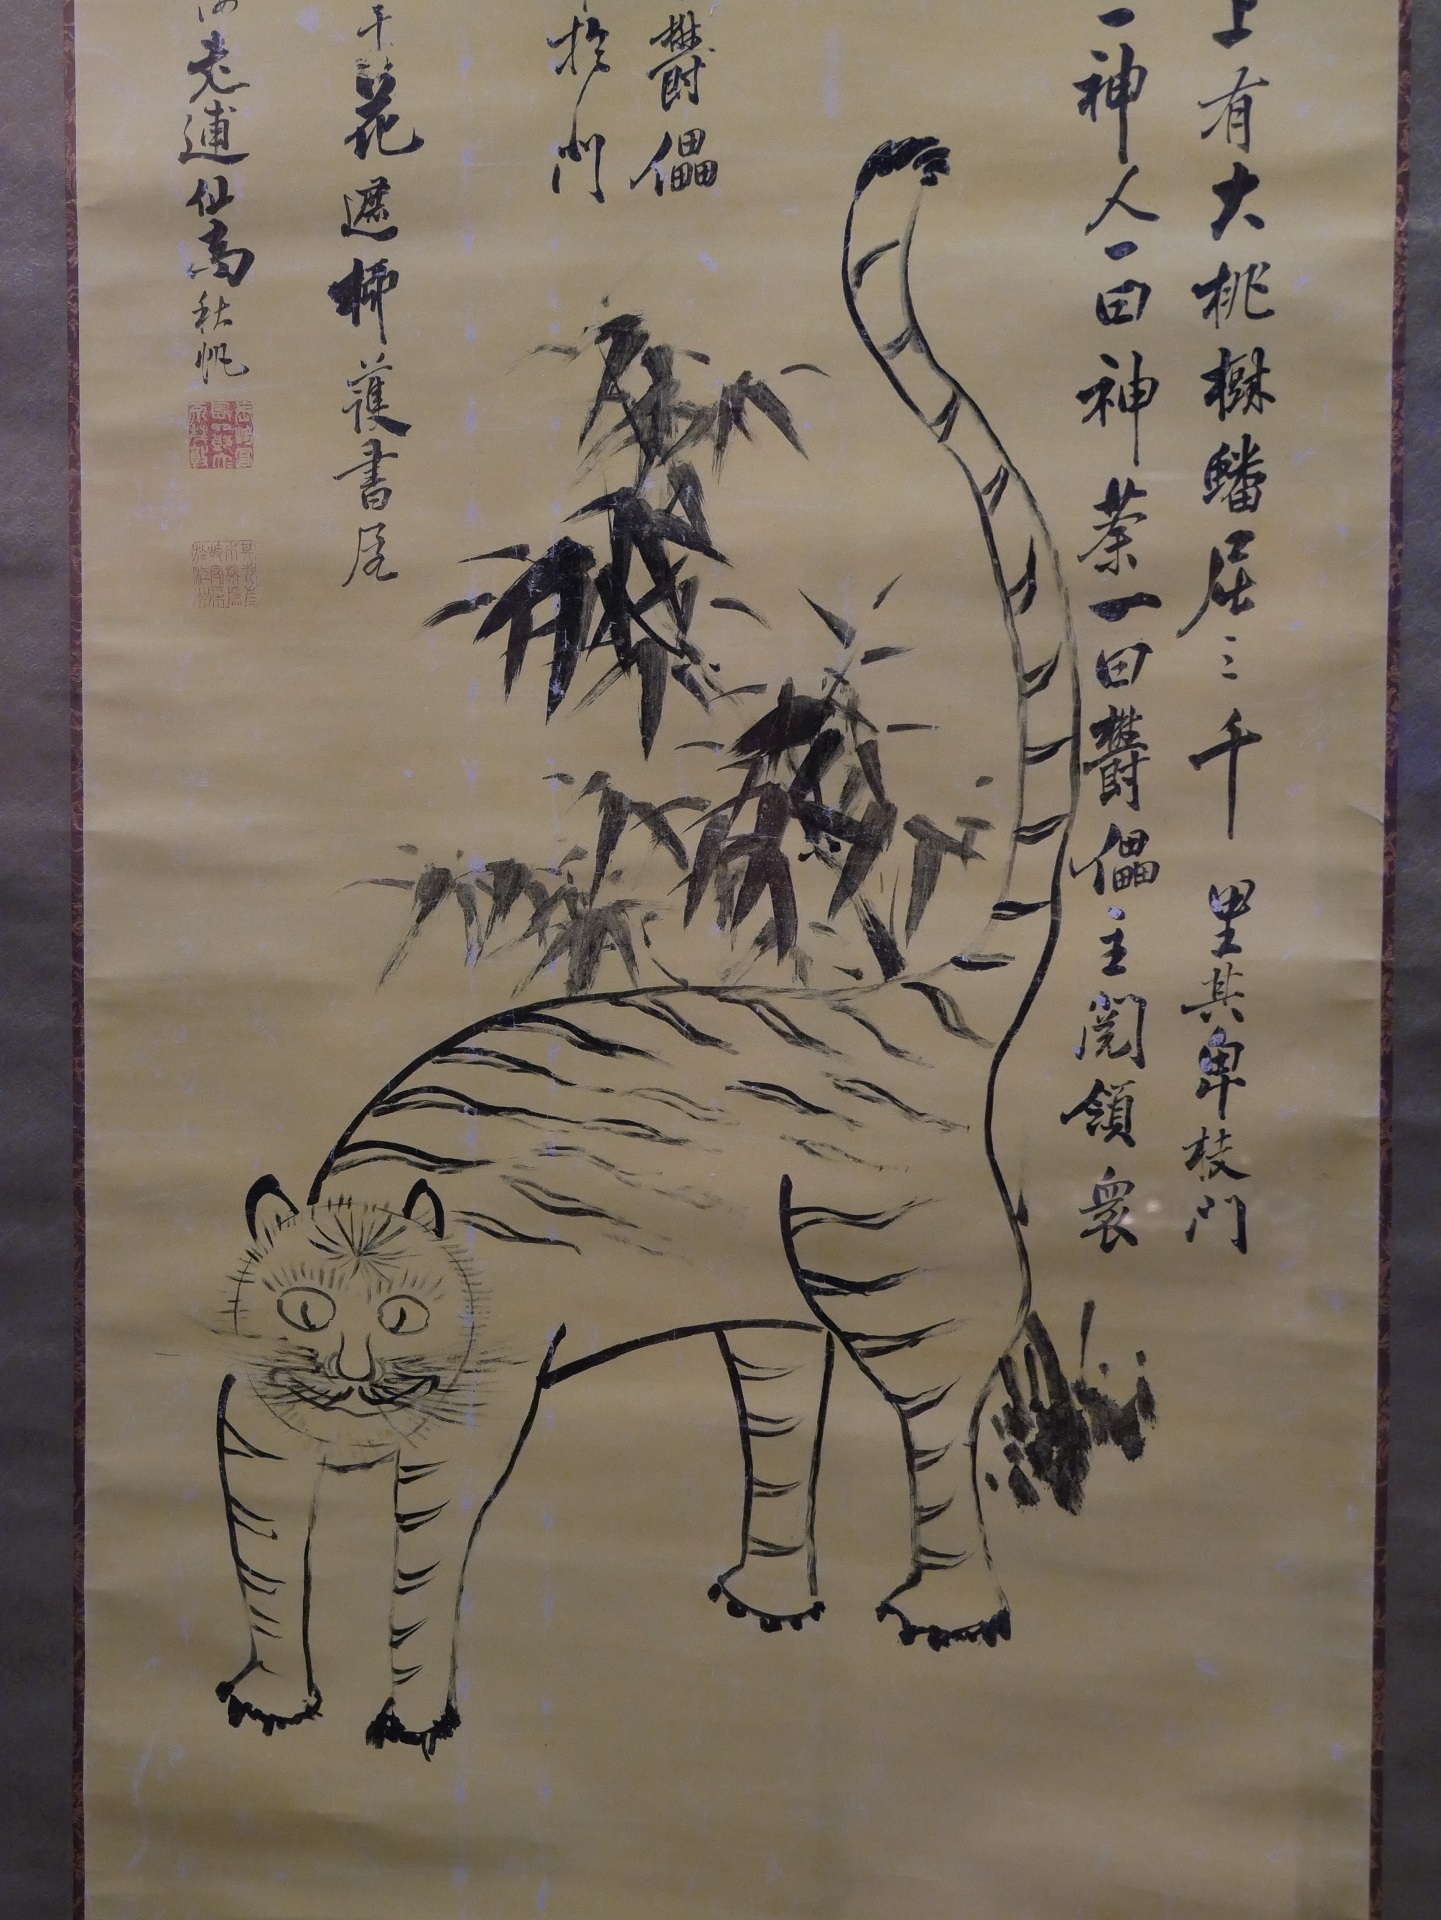 上有大桃樹蟠屈三千里其卑枝門
一神人一曰神荼一曰鬱儡主閲領衆
鬱儡
於門
花遮柳護書尾
老逋仙高秋帆